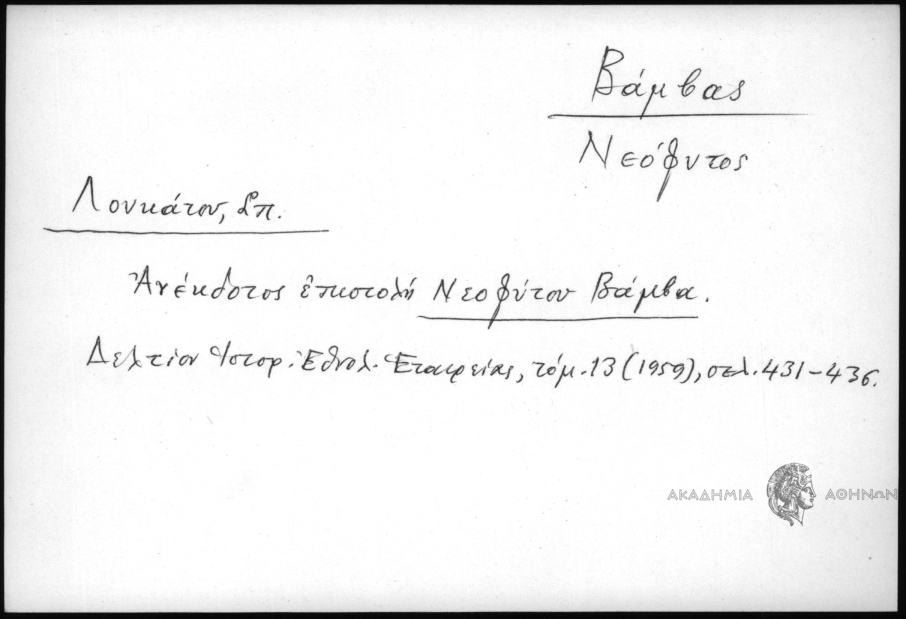 Βάμβας
Νεόφυτος
Λουκάτου, Σπ.
Ἀνέκδοτος ἐπιστολή Νεοφύτου Βάμβα.
Δελτίον Ἱστορ. Ἐθνολ. Ἑταιρείας, τόμ. 13 (1959), σελ. 431-436.
ΑΚΑΔΗΜΙΑ ΑΘΗΝΩΝ